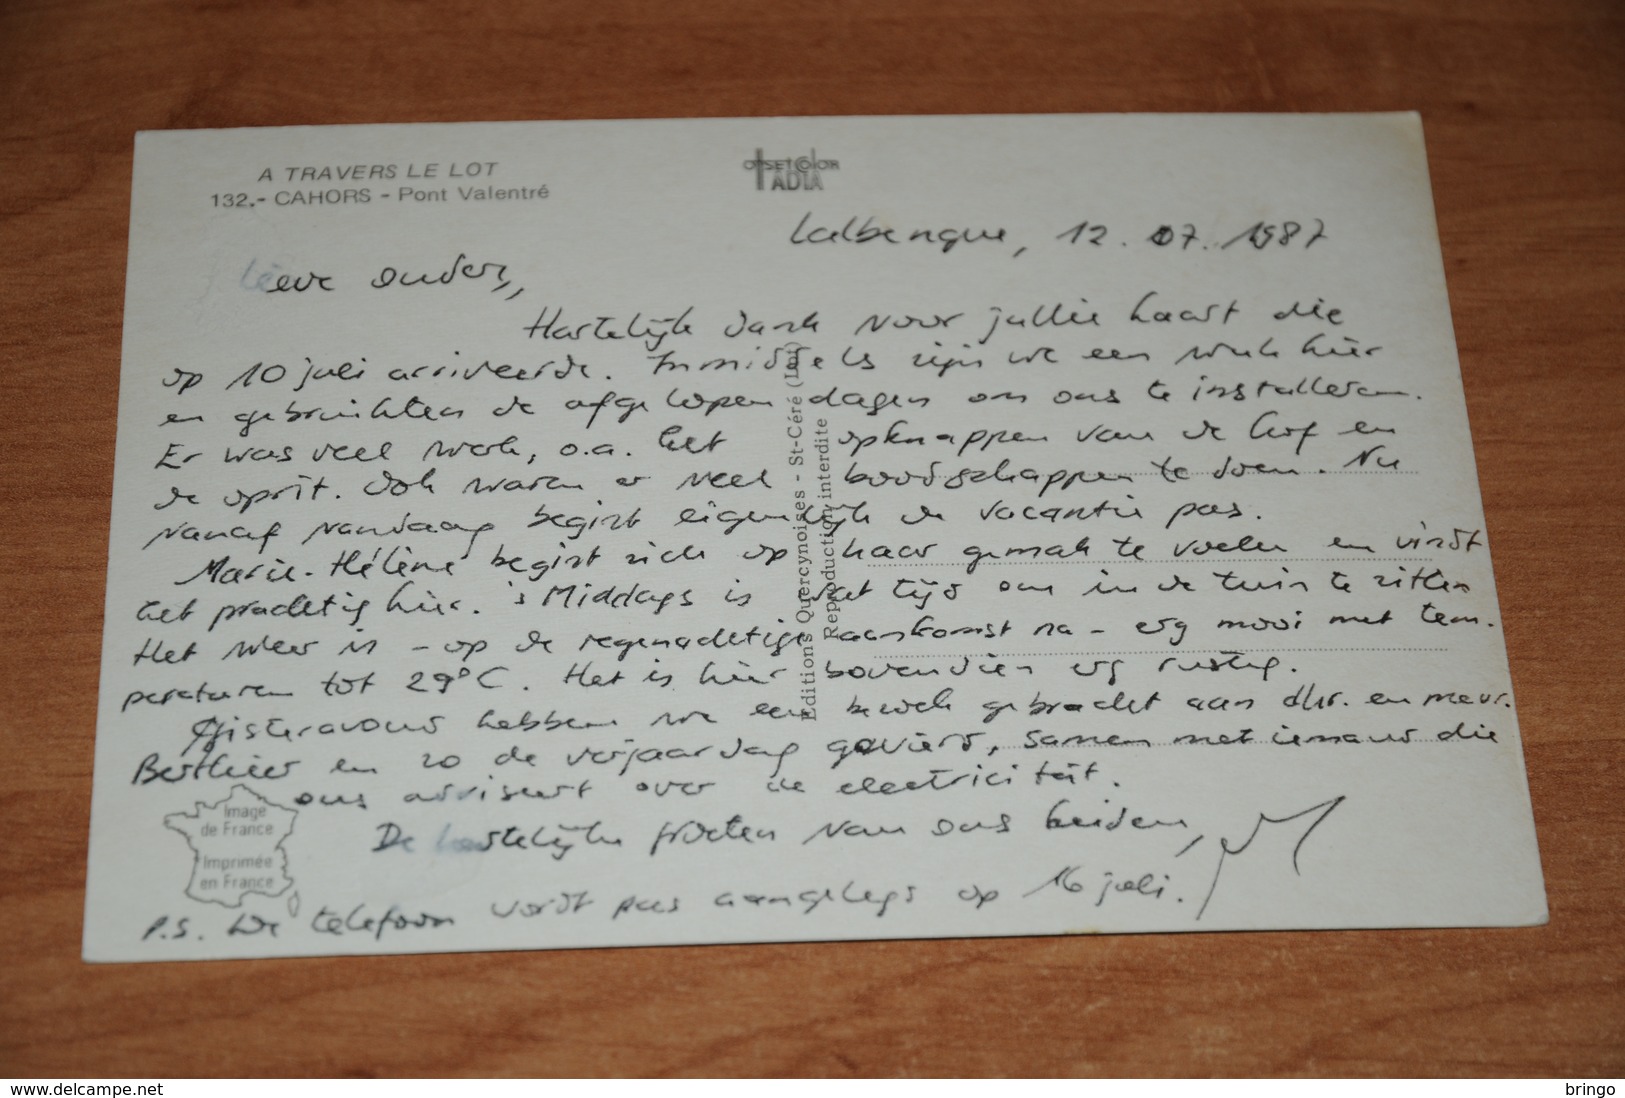 A TRAVERS LE LOT
132.- CAHORS - Pont Valentré
OFFSET COLOR
TADIA
Lalbenque, 12.07.1987
Lieve ouders,
Hartelijk dank voor jullie kaart die
op 10 juli arriveerde. Inmiddels zijn we een week hier
en gebruikten de afgelopen dagen om ons te installeren.
Er was veel werk, o.a. het opknappen van de hof en
de oprit. Ook waren er veel boodschappen te doen. Nu
vanaf vandaag begint eigenlijk de vacantie pas.
Marie-Hélène begint zich op haar gemak te voelen en vindt
het prachtig hier. 's Middags is het tijd om in de tuin te zitten
Het weer is - op de regenachtige aankomst na - erg mooi met tem-
peraturen tot 29°C. Het is hier bovendien erg rustig.
Gisteravond hebben we een bezoek gebracht aan dhr. en mevr.
Berthier en zo de verjaardag gevierd, samen met iemand die
ons adviseert over de electriciteit.
De hartelijke groeten van ons beiden,
P.S. De telefoon wordt pas aangelegd op 16 juli.
Editions Quercynoises - St-Céré (Lot)
Reproduction interdite
Image
de France
Imprimée
en France
www.delcampe.net
bringo